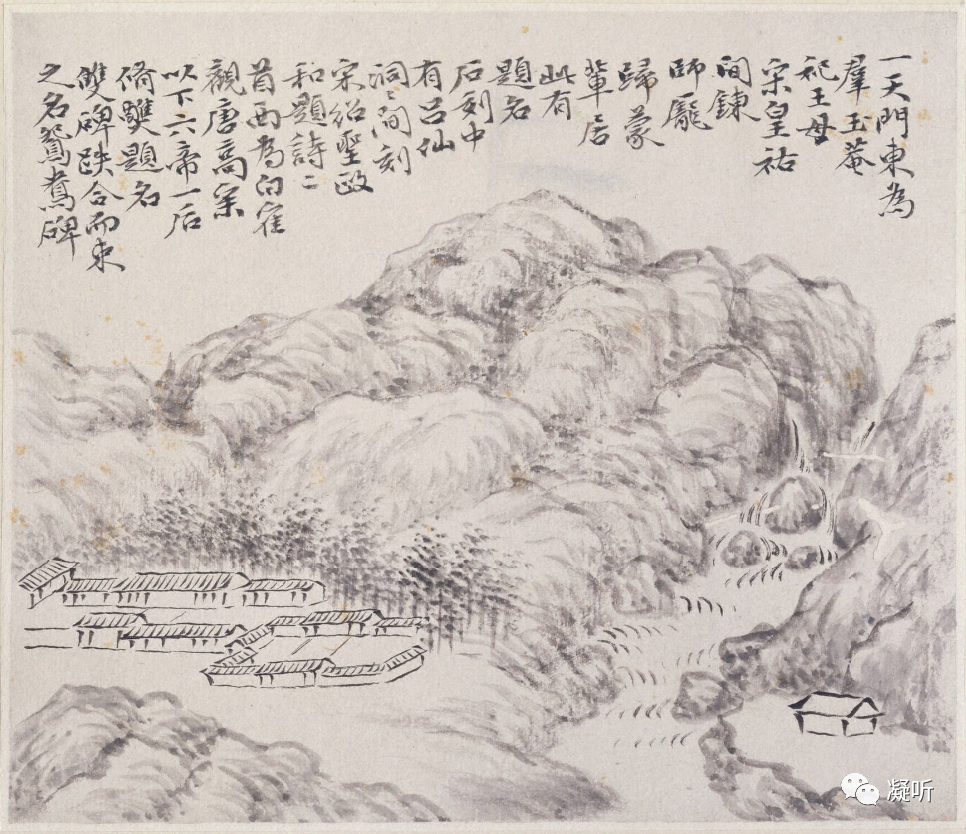 一天門東為
羣玉菴
祀王母
宋皇祐
間鍊
師龐
歸蒙
輩居
此有
題名
后刻中
有呂仙
洞〻間刻
宋紹聖政
和題詩二
首西為白雀
觀唐高宗
以下六帝一后
脩題名
雙碑趺合而束
之名鴛鴦碑
凝听